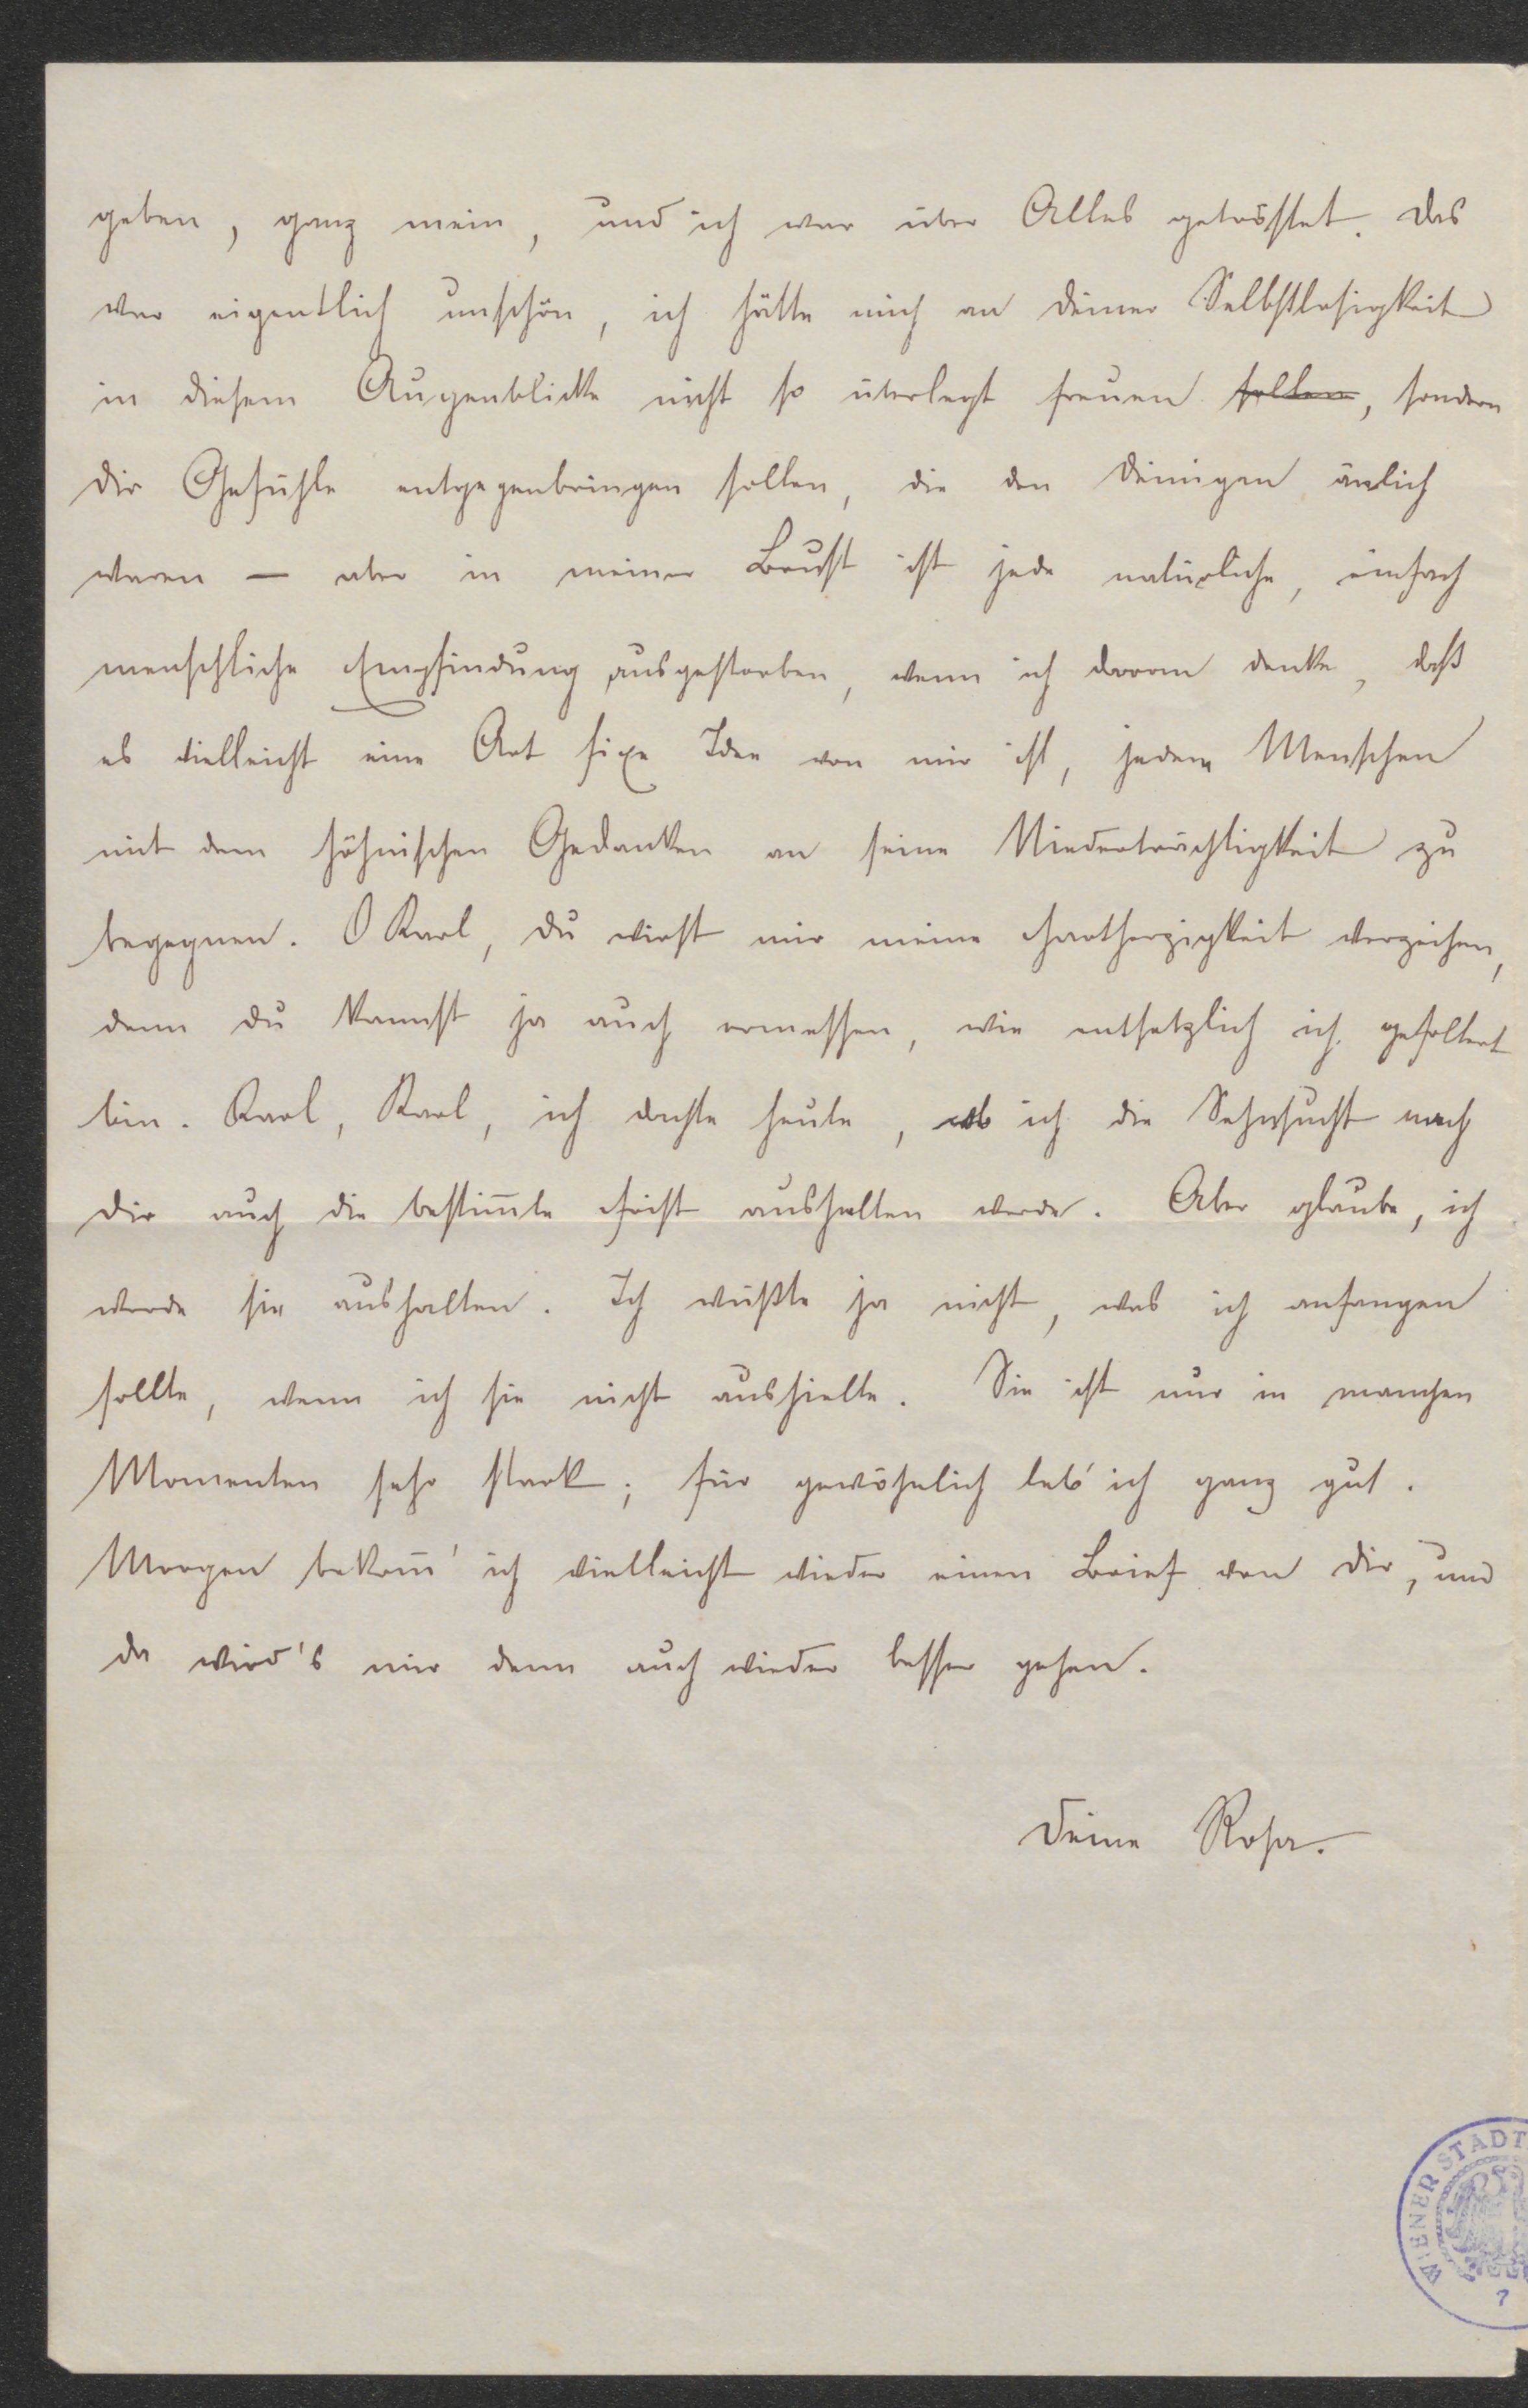 geben, ganz mein, und ich war über Alles getröstet. Das
war eigentlich unschön, ich hätte mich an deiner Selbstlosigkeit
in diesem Augenblicke nicht so überlegt freuen sollen, sondern
dir Gefühle entgegenbringen sollen, die den deinigen änlich
waren — aber in meiner Brust ist jede natürliche, einfach
menschliche Empfindung ausgestorben, wenn ich daran denke, daß
es vielleicht eine Art fixe Idee von mir ist, jedem Menschen
mit dem höhnischen Gedanken an seine Niederträchtigkeit zu
begegnen. O Karl, du wirst mir meine Hartherzigkeit verzeihen,
denn du kannst ja auch ermessen, wie entsetzlich ich gefoltert
bin. Karl, Karl, ich dachte heute, ob ich die Sehnsucht nach
dir auch die bestim̅te Frist aushalten werde. Aber glaube, ich
werde sie aushalten. Ich wüßte ja nicht, was ich anfangen
sollte, wenn ich sie nicht aushielte. Sie ist nur in manchen
Momenten sehr stark; für gewöhnlich leb' ich ganz gut.
Morgen bekom̅' ich vielleicht wieder einen Brief von dir, und
da wird's mir denn auch wieder besser gehen.
Deine Rosa.
WIENER STADT
7